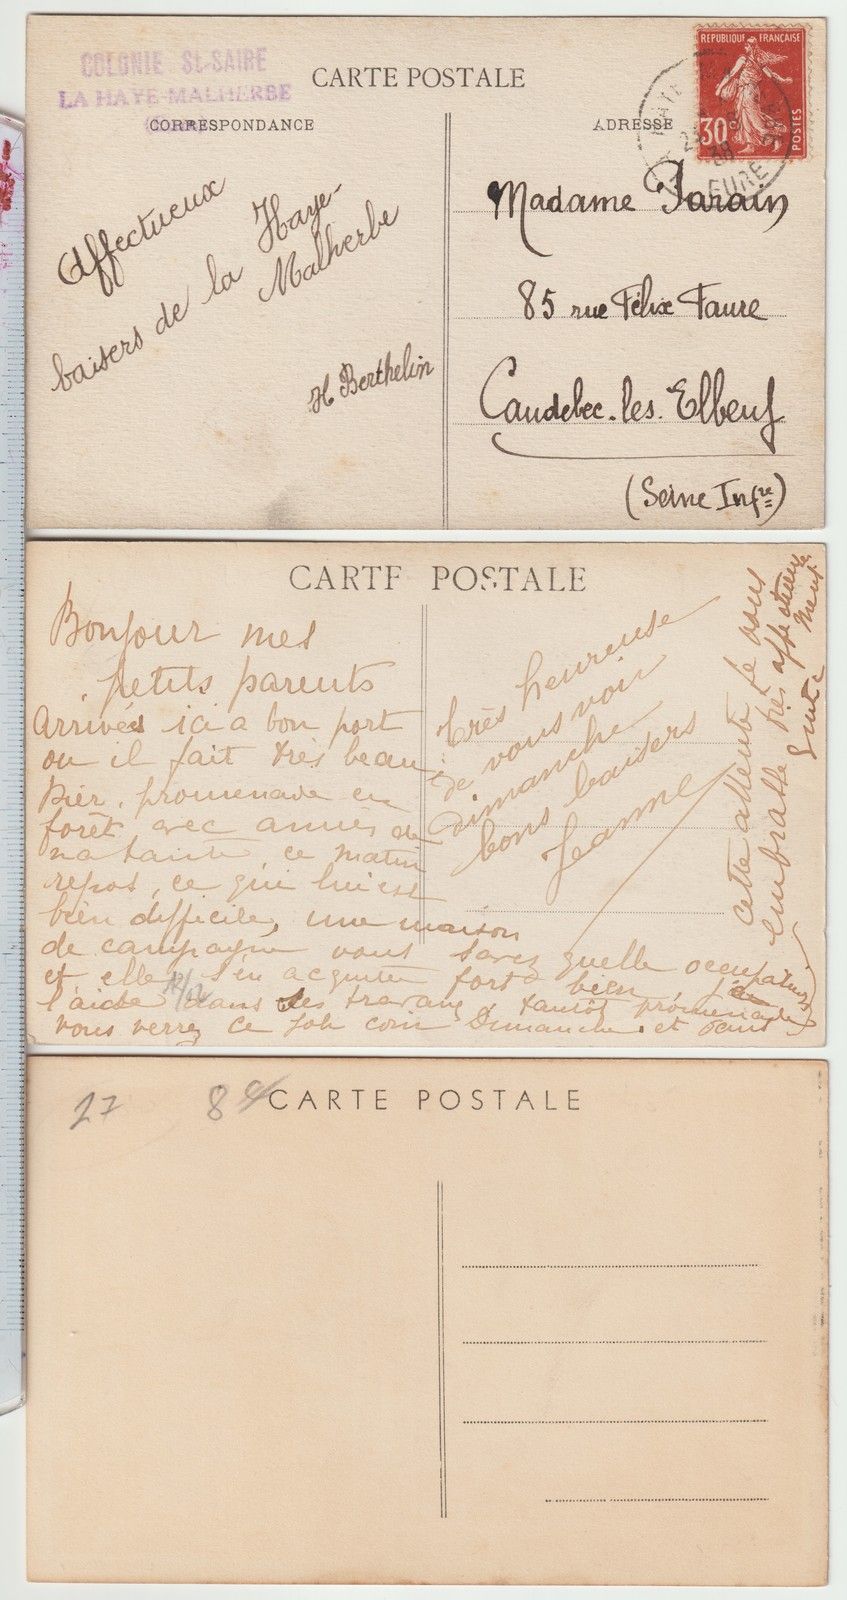 COLONIE St-SAIRE
LA HAYE-MALHERBE
CARTE POSTALE
CORRESPONDANCE
ADRESSE
REPUBLIQUE FRANÇAISE
30
POSTES
EURE
Affectueux
baisers de la Haye-
Malherbe
H Berthelin
Madame Parain
85 rue Félix Faure
Caudebec-les-Elbeuf
(Seine Infre)
CARTE POSTALE
Bonjour mes
petits parents
Arrivées ici a bon port
ou il fait très beau
hier, promenade en
forêt avec amies de
ma tante, ce matin
repos, ce qui lui est
bien difficile, une maison
de campagne vous savez quelle occupation
et elle s'en acquitte fort bien, j
l'aide dans les travaux, tantôt promenade
vous verrez ce joli coin Dimanche et dans
cette attente je vous
embrasse très affectueuse
ment
Très heureuse
de vous voir
Dimanche
bons baisers
Jeanne
27
8
CARTE POSTALE